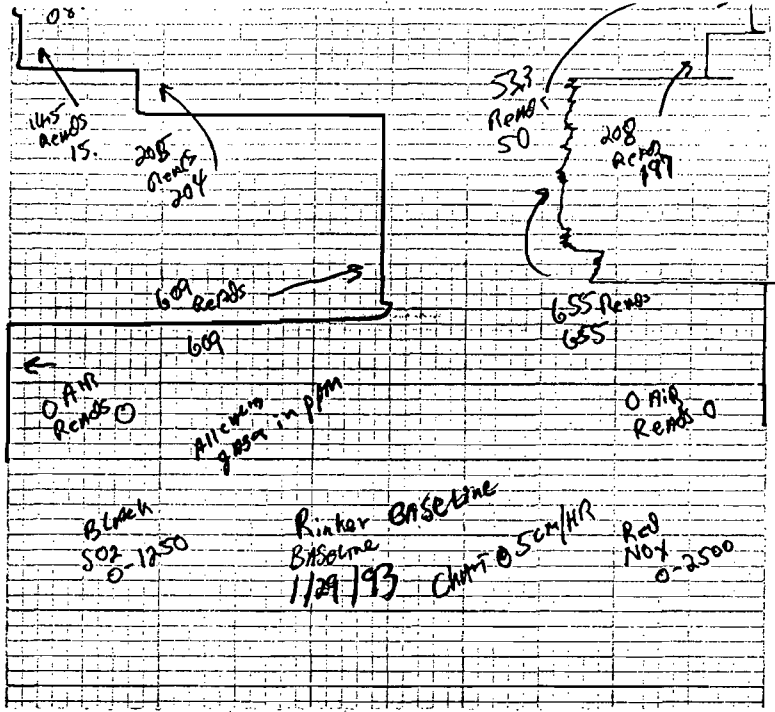 08.
145
Reads
15.
205
Reads
204
533
Reads
50
208
Reads
197
609 Reads
609
655 Reads
655
0 AIR
Reads 0
All
gases in ppm
0 AiR
Reads 0
Black
SO2
0-1250
Rinker BASEline
BASeline
1/29/93
Chart @ 5cm/HR
Red
NOX
0-2500